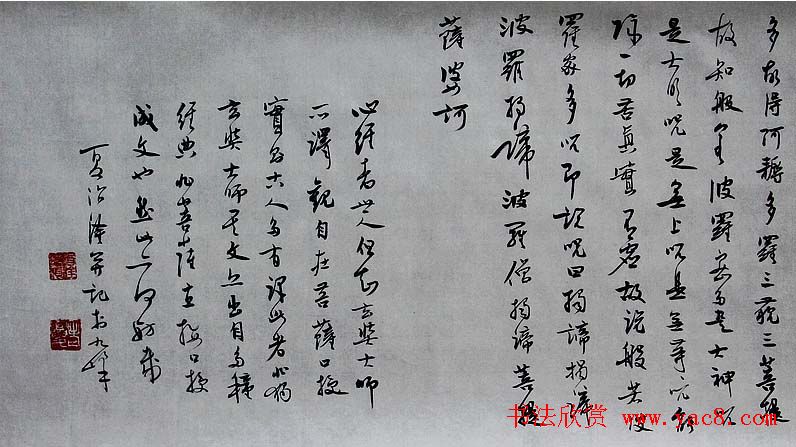 多故得阿耨多羅三藐三菩提
故知般若波羅密多是大神咒
是大明咒是無上咒是無等等咒能
除一切苦真實不虛故說般若波
羅密多咒即說咒曰揭諦揭諦
波羅揭諦波羅僧揭諦菩提
薩婆訶
心經者世人但知玄奘大師
所譯觀自在菩薩口授
實古人多有譯此者非獨
玄奘大師其文亦出自多種
經典非菩薩直接口授
成文也然此亦何妨哉
夏并記於九峰
书法欣赏 www.yac8.com